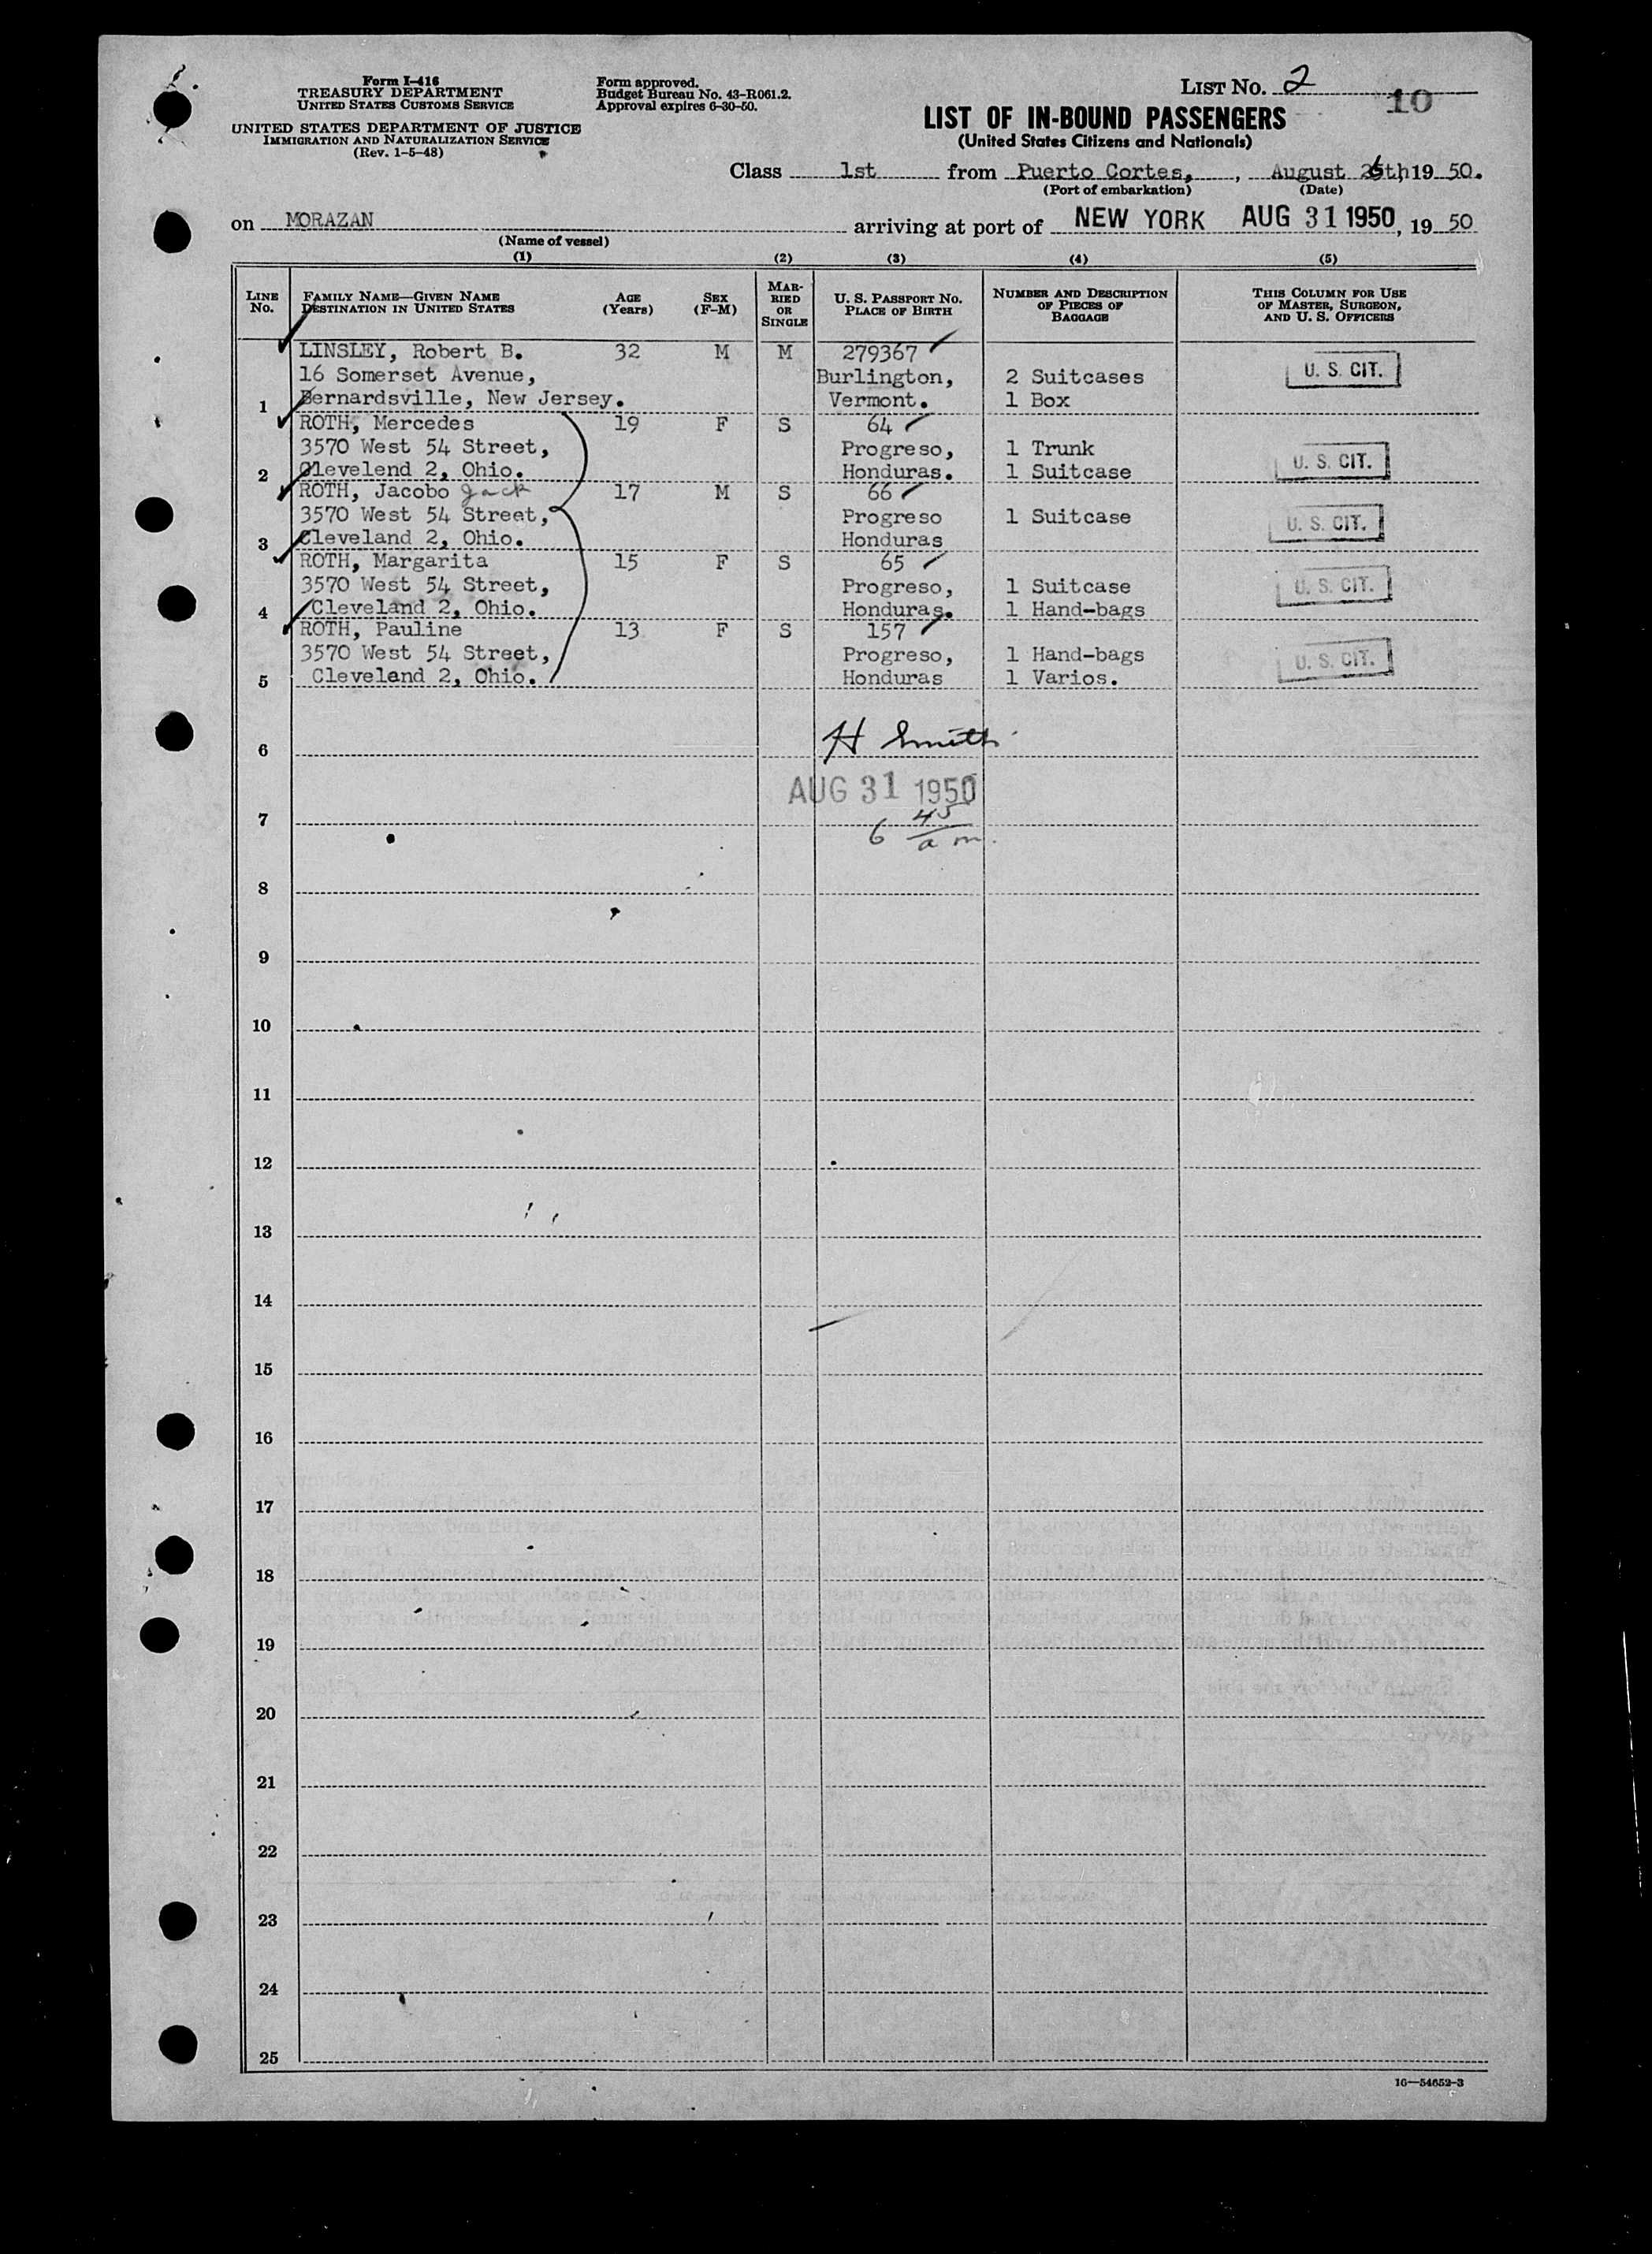 Form I-416
TREASURY DEPARTMENT
UNITED STATES CUSTOMS SERVICE
UNITED STATES DEPARTMENT OF JUSTICE
IMMIGRATION AND NATURALIZATION SERVICE
(Rev. 1-5-48)
Form approved.
Budget Bureau No. 43-R061.2.
Approval expires 6-30-50.
LIST No. 2
10
LIST OF IN-BOUND PASSENGERS
(United States Citizens and Nationals)
Class 1st from Puerto Cortes, , August 26th, 19 50.
(Port of embarkation) (Date)
on MORAZAN arriving at port of NEW YORK AUG 31 1950, 19 50
(Name of vessel)
(1) (2) (3) (4) (5)
LINE No.
FAMILY NAME—GIVEN NAME
DESTINATION IN UNITED STATES
AGE (Years)
SEX (F-M)
MARRIED OR SINGLE
U. S. PASSPORT No.
PLACE OF BIRTH
NUMBER AND DESCRIPTION OF PIECES OF BAGGAGE
THIS COLUMN FOR USE OF MASTER, SURGEON, AND U. S. OFFICERS
LINSLEY, Robert B. 32 M M 279367
16 Somerset Avenue, Burlington, 2 Suitcases U. S. CIT.
1 Bernardsville, New Jersey. Vermont. 1 Box
ROTH, Mercedes 19 F S 64
3570 West 54 Street, Progreso, 1 Trunk U. S. CIT.
2 Clevelend 2, Ohio. Honduras. 1 Suitcase
ROTH, Jacobo Jack 17 M S 66
3570 West 54 Street, Progreso 1 Suitcase U. S. CIT.
3 Cleveland 2, Ohio. Honduras
ROTH, Margarita 15 F S 65
3570 West 54 Street, Progreso, 1 Suitcase U. S. CIT.
4 Cleveland 2, Ohio. Honduras. 1 Hand-bags
ROTH, Pauline 13 F S 157
3570 West 54 Street, Progreso, 1 Hand-bags U. S. CIT.
5 Cleveland 2, Ohio. Honduras 1 Varios.
6 H Smith
AUG 31 1950
7
6 45 a m.
8
9
10
11
12
13
14
15
16
17
18
19
20
21
22
23
24
25
16—54652-3